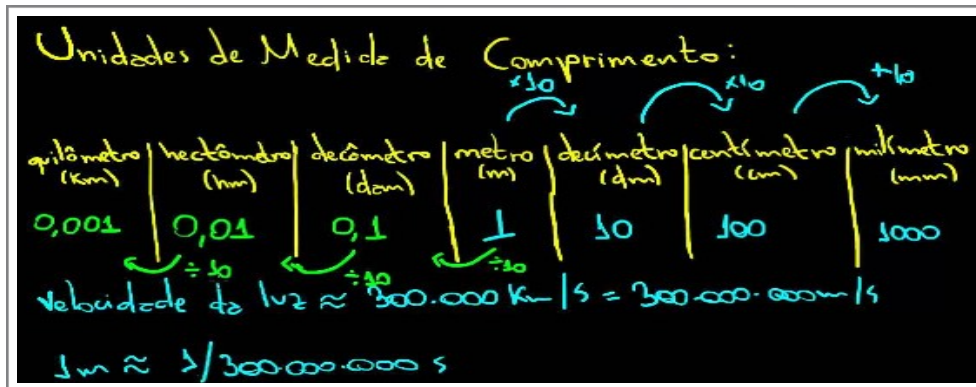 Unidades de Medida de Comprimento:
×10 ×10 ×10
quilômetro | hectômetro | decâmetro | metro | decímetro | centímetro | milímetro
(km) (hm) (dam) (m) (dm) (cm) (mm)
0,001 0,01 0,1 1 10 100 1000
÷10 ÷10 ÷10
velocidade da luz ≈ 300.000 Km/s = 300.000.000m/s
1m ≈ 1/300.000.000 s